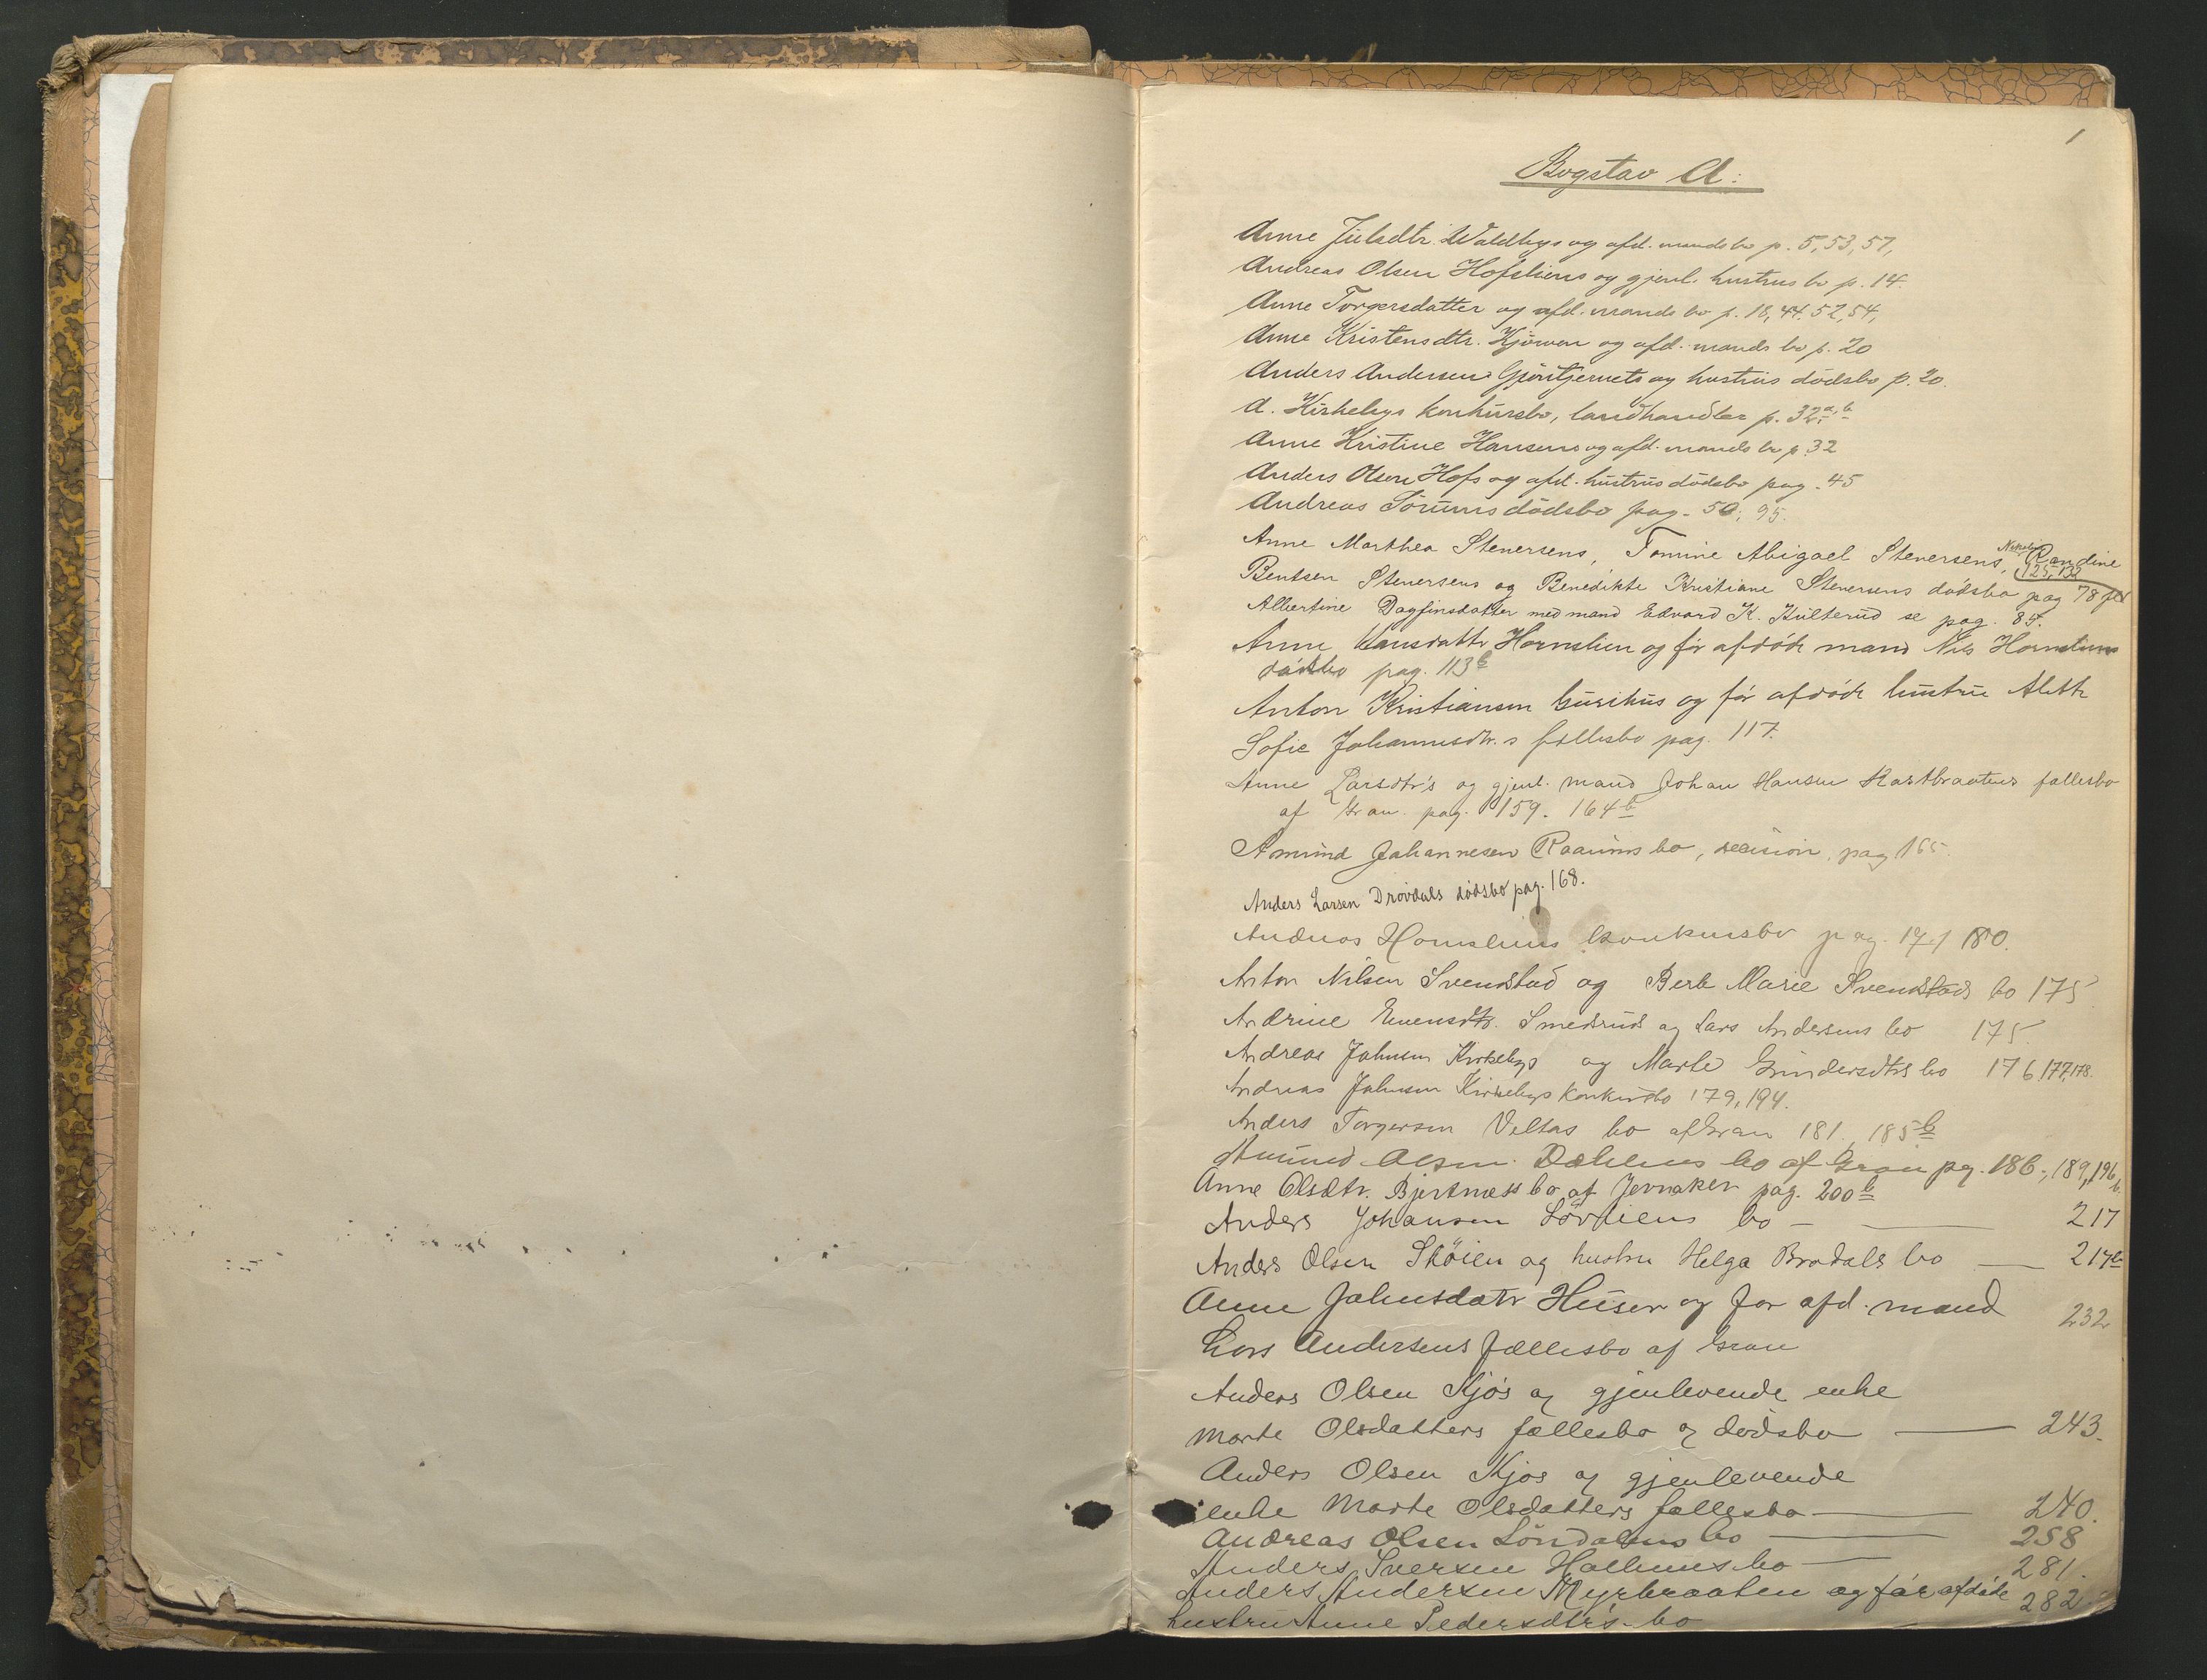 1
Bogstav A:
Anne Julsdtr. Waldbys og afd. mands bo p. 5, 53, 57,
Andreas Olsen Hofsliens og gjenl. hustrus bo p. 14.
Anne Torgersdatter og afd. mands bo p. 18, 44. 52, 54,
Anne Kristensdtr. og afd. mands bo p. 20
Anders Andersen og hustrus dödsbo p. 20.
A. Kirkebys konkursbo, landhandler p. 32 a, b
Anne Kristine Hansens og afd. mands bo p. 32
Anders Olsen Hofs og afd. hustrus dödsbo pag. 45
Andreas Sörums dödsbo pag. 50; 95.
Anne Marthea Stenersens, Tomine Abigael Stenersens, Randine
125, 132
Bentsen Stenersens og Benedikte Kristiane Stenersens dödsbo pag 78
Albertine Dagfinsdatter med mand Edvard K. Hulterud se pag. 84.
Anne Hansdattr Hornslien og før afdöde mand Nils Hornsliens
dödsbo pag. 113 b
Anton Kristiansen og før afdöde hustru Aleth
Sofie Johannesdtr.s fællesbo pag. 117.
Anne Larsdtr's og gjenl. mand Johan Hansen Kastbraatens fællesbo
af Gran. pag. 159. 164 b
Amund Johannesen Raaums bo, pag 165.
Anders Larsen Drövdals dödsbo pag. 168.
Andreas Hornsliens konkursbo pag. 171 180.
Anton Nilsen Svenstad og Berte Marie Svenstads bo 175
Andrine Evensdtr. Smedsrud og Lars Andersens bo 175.
Andreas Johnsen Kirkebys og Marte Gundersdtrs bo 176, 177, 178.
Andreas Johnsen Kirkebys konkursbo 179, 194.
Anders Torgersen Veltas bo af Gran 181, 185 b
Amund Olsen Dæhlens bo af Gran pg. 186, 189, 196 b.
Anne Olsdtr. Bjertnæss bo af Jevnaker pag. 200 b
Anders Johansen Lövliens bo - — 217
Anders Olsen Sköien og hustru Helga Brodals bo — 217 b
Anne Johnsdatr Huser og før afd. mand 232
Lars Andersens fællesbo af Gran
Anders Olsen Kjös og gjenlevende enke
Marte Olsdatters fællesbo og dödsbo — 243.
Anders Olsen Kjos og gjenlevende
enke Marte Olsdatters fællesbo — 240.
Andreas Olsen Söndalens bo — 258
Anders Iversen Hallums bo — 281.
Anders Andersen Myrbraaten og før afdöde 282.
hustru Anne Pedersdtr's bo